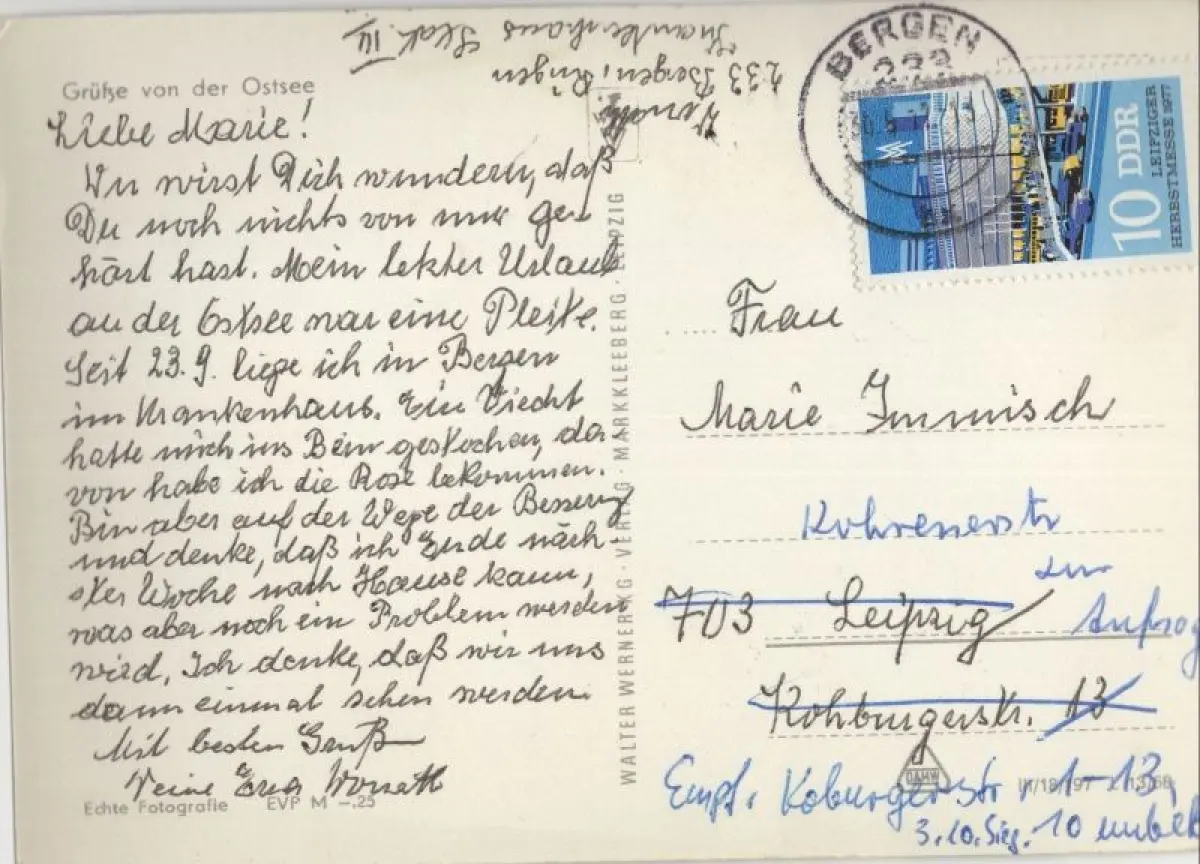 Grüße von der Ostsee
Liebe Marie!
Du wirst Dich wundern, daß
Du noch nichts von mir ge-
hört hast. Mein letzter Urlaub
an der Ostsee war eine Pleite.
Seit 23.9. liege ich in Bergen
im Krankenhaus. Ein Viech
hatte mich ins Bein gestochen, da
von habe ich die Rose bekommen.
Bin aber auf der Wege der Besserung
und denke, daß ich Ende näch-
ster Woche nach Hause kann,
was aber noch ein Problem werden
wird. Ich denke, daß wir uns
dann einmal sehen werden.
Mit besten Gruß
Deine
Echte Fotografie EVP M -,25
233 Bergen, Rügen
Krankenhaus Stat. III
WALTER WERNER KG · VERLAG · MARKKLEEBERG · LEIPZIG
BERGEN
233
10 DDR
LEIPZIGER
HERBSTMESSE 1977
Frau
Marie Immisch
Kohrenerstr
zur
703 Leipzig
Kohburgerstr. 13
DAHW
III/18/197
Empf. Koburgerstr. 1-13,
3.10. 10 unbek